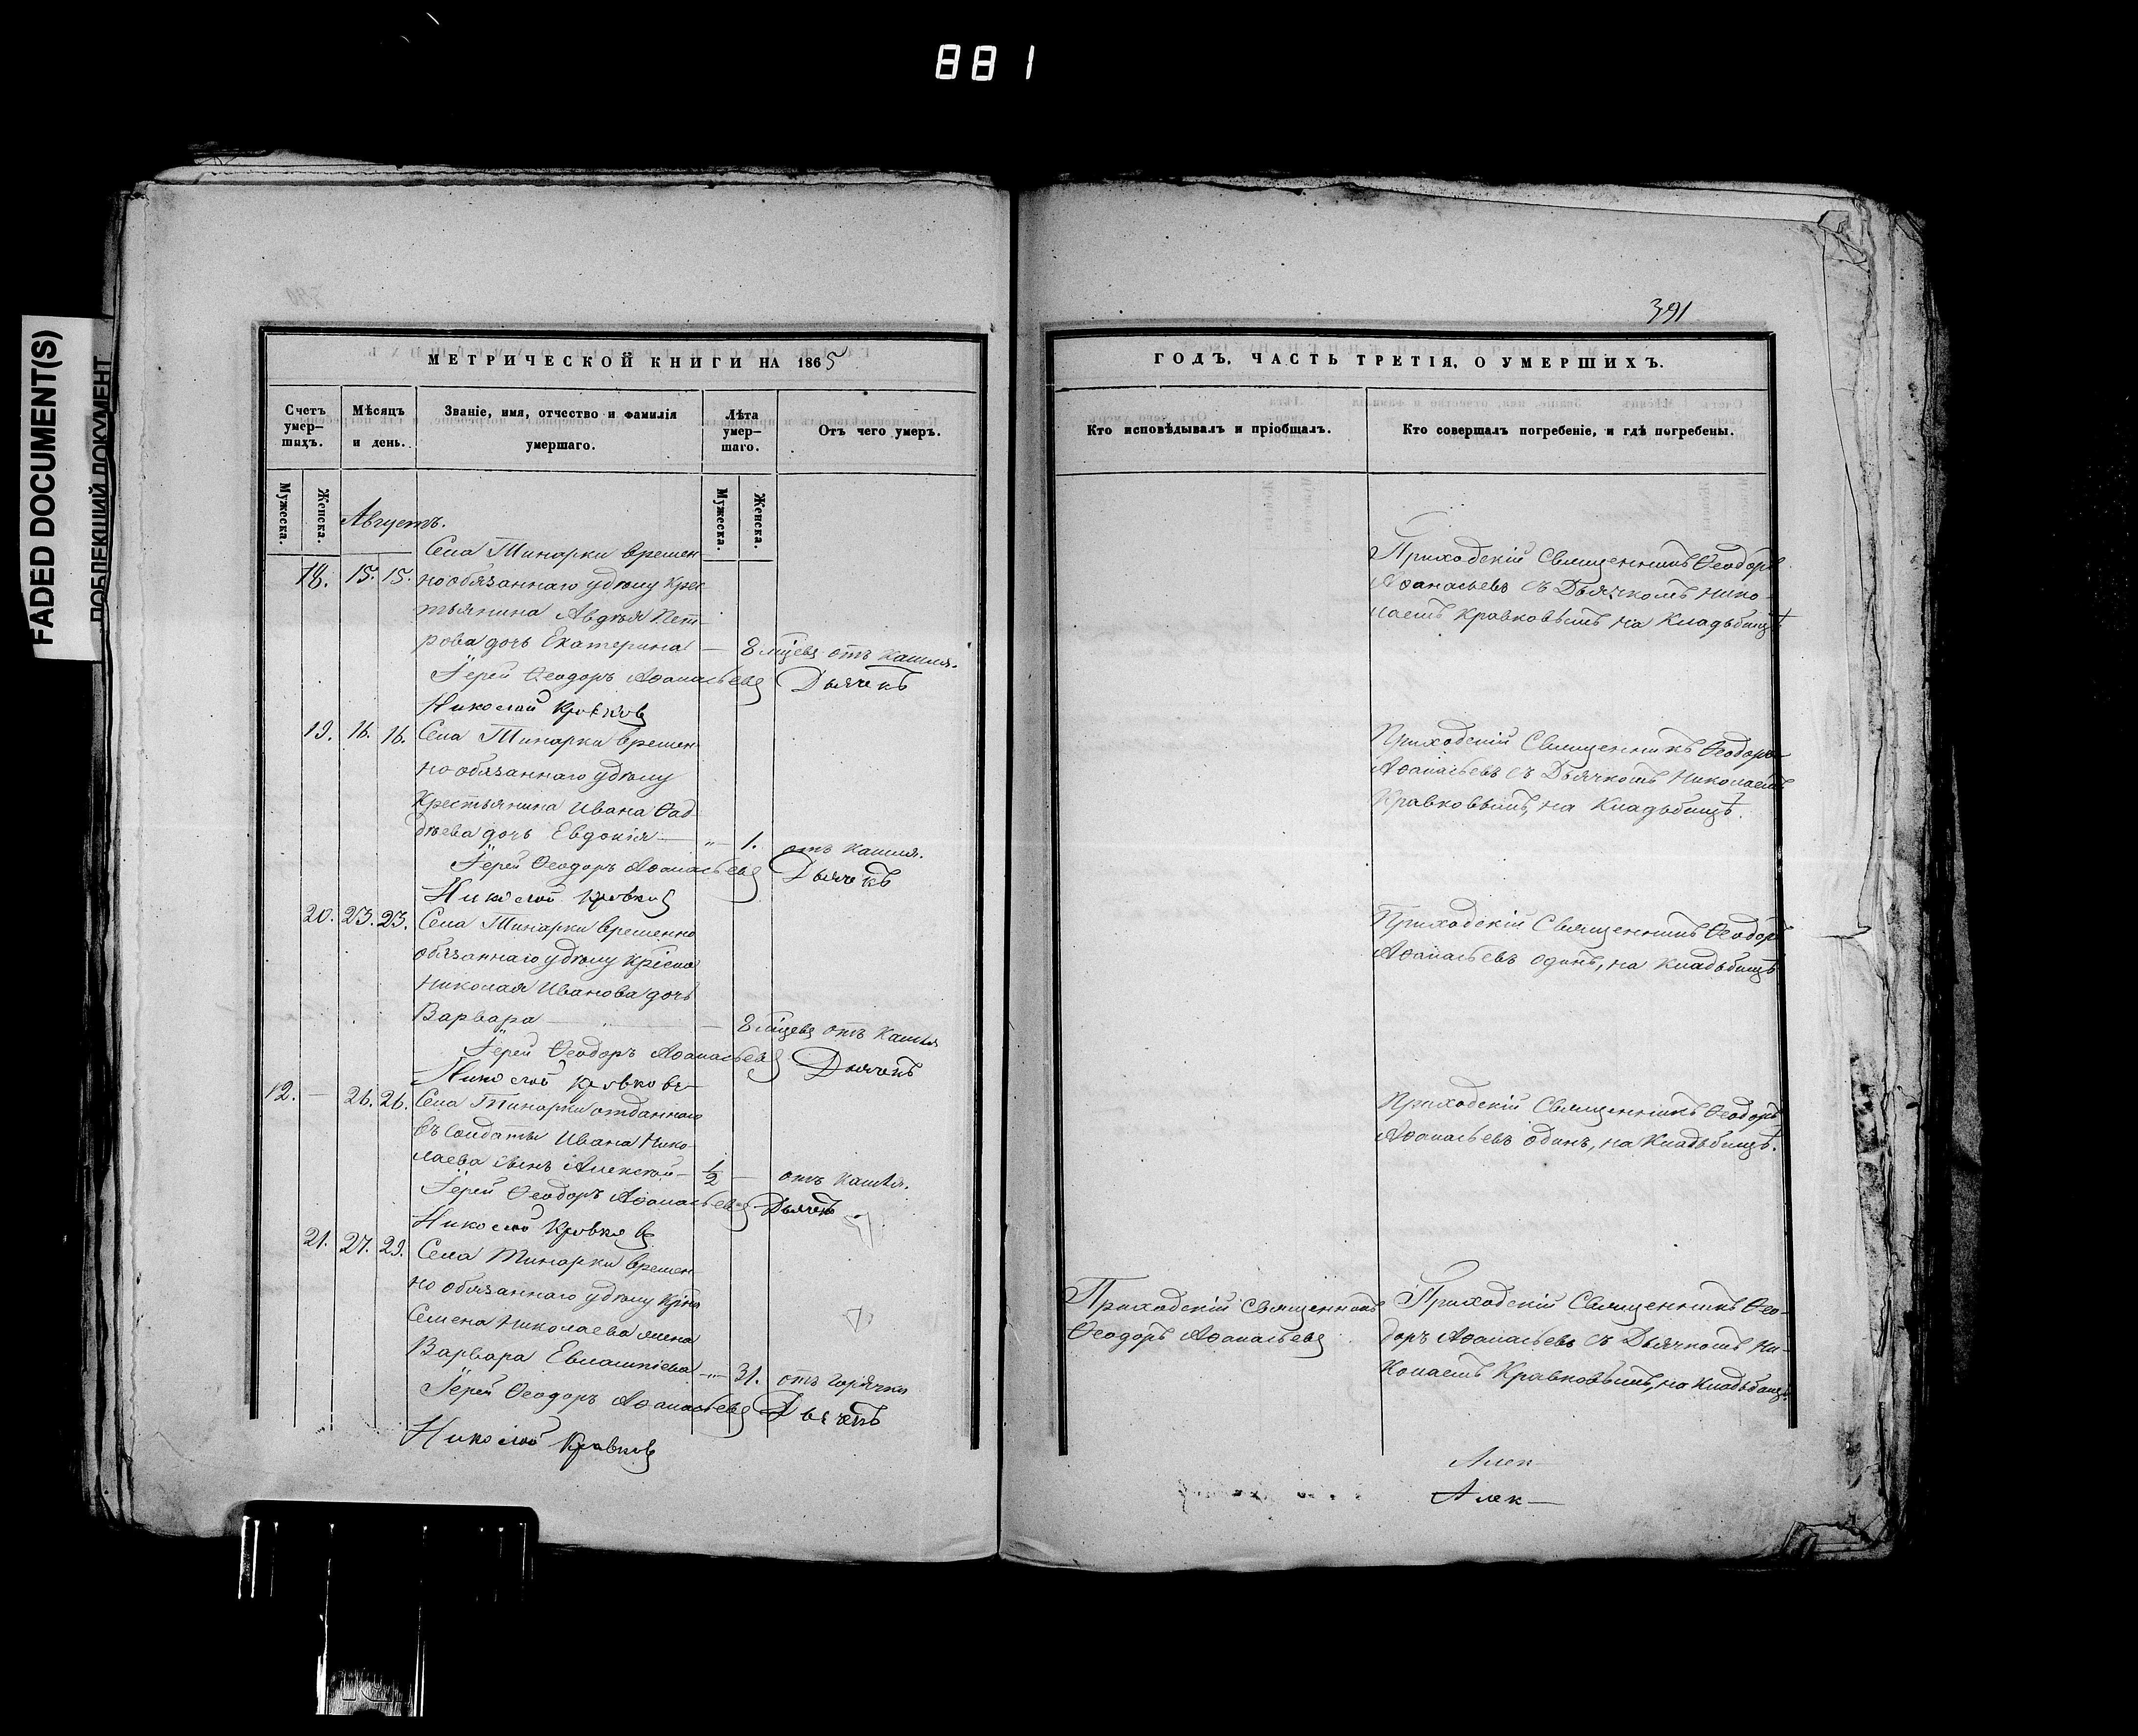 881
FADED DOCUMENT(S)
ПОБЛЕКШИЙ ДОКУМЕНТ
391
МЕТРИЧЕСКОЙ КНИГИ НА 1865
Счетъ умер-шихъ.
Мѣсяцъ и день.
Званіе, имя, отчество и фамилія умершаго.
Лѣта умер-шаго.
Отъ чего умеръ.
Мужеска.
Женска.
Мужеска.
Женска.
Августъ.
Села Тинарки времен-
18. 15. 15. но обязаннаго удѣлу крес
тьянина Авдѣя Пет-
рова дочь Екатерина — 8 м͠цевъ отъ кашля.
Іерей Ѳеодоръ Аѳанасьевъ Дьячекъ
Николай Кравковъ
19. 16. 16. Села Тинарки времен-
но обязаннаго удѣлу
Крестьянина Ивана Ѳад
дѣева дочь Евдокія — „ — 1. отъ кашля.
Іерей Ѳеодоръ Аѳанасьевъ Дьячекъ
Николай Кравковъ
20. 23. 23. Села Тинарки временно
обязаннаго удѣлу
Николая Иванова дочь
Варвара — 8 м͠цевъ отъ кашля
Іерей Ѳеодоръ Аѳанасьевъ Дьячекъ
Николай Кравковъ
12. — 26. 26. Села Тинарки отданнаго
въ солдаты Ивана Нико-
лаева сынъ Алексѣй — 1/2 — отъ кашля.
Іерей Ѳеодоръ Аѳанасьевъ Дьячекъ
Николай Кравковъ
21. 27. 29. Села Тинарки времен-
но обязаннаго удѣлу
Семена Николаева жена
Варвара Евлампіева — „ — 31. отъ горячки
Іерей Ѳеодоръ Аѳанасьевъ Дьячекъ
Николай Кравковъ
ГОДЪ, ЧАСТЬ ТРЕТІЯ, О УМЕРШИХЪ.
Кто исповѣдывалъ и пріобщалъ.
Кто совершалъ погребеніе, и гдѣ погребены.
Приходскій Священникъ Ѳеодоръ
Аѳанасьевъ съ Дьячкомъ Нико-
лаемъ Кравковымъ на Кладьбищѣ
Приходскій Священникъ Ѳеодоръ
Аѳанасьевъ съ Дьячкомъ Николаемъ
Кравковымъ, на Кладьбищѣ.
Приходскій Священникъ Ѳеодоръ
Аѳанасьевъ одинъ, на Кладьбищѣ
Приходскій Священникъ Ѳеодоръ
Аѳанасьевъ одинъ, на Кладьбищѣ.
Приходскій Священникъ
Ѳеодоръ Аѳанасьевъ
Приходскій Священникъ Ѳео-
доръ Аѳанасьевъ съ Дьячкомъ Ни-
колаемъ Кравковымъ, на Кладьбищѣ.
Алек-
Алек-